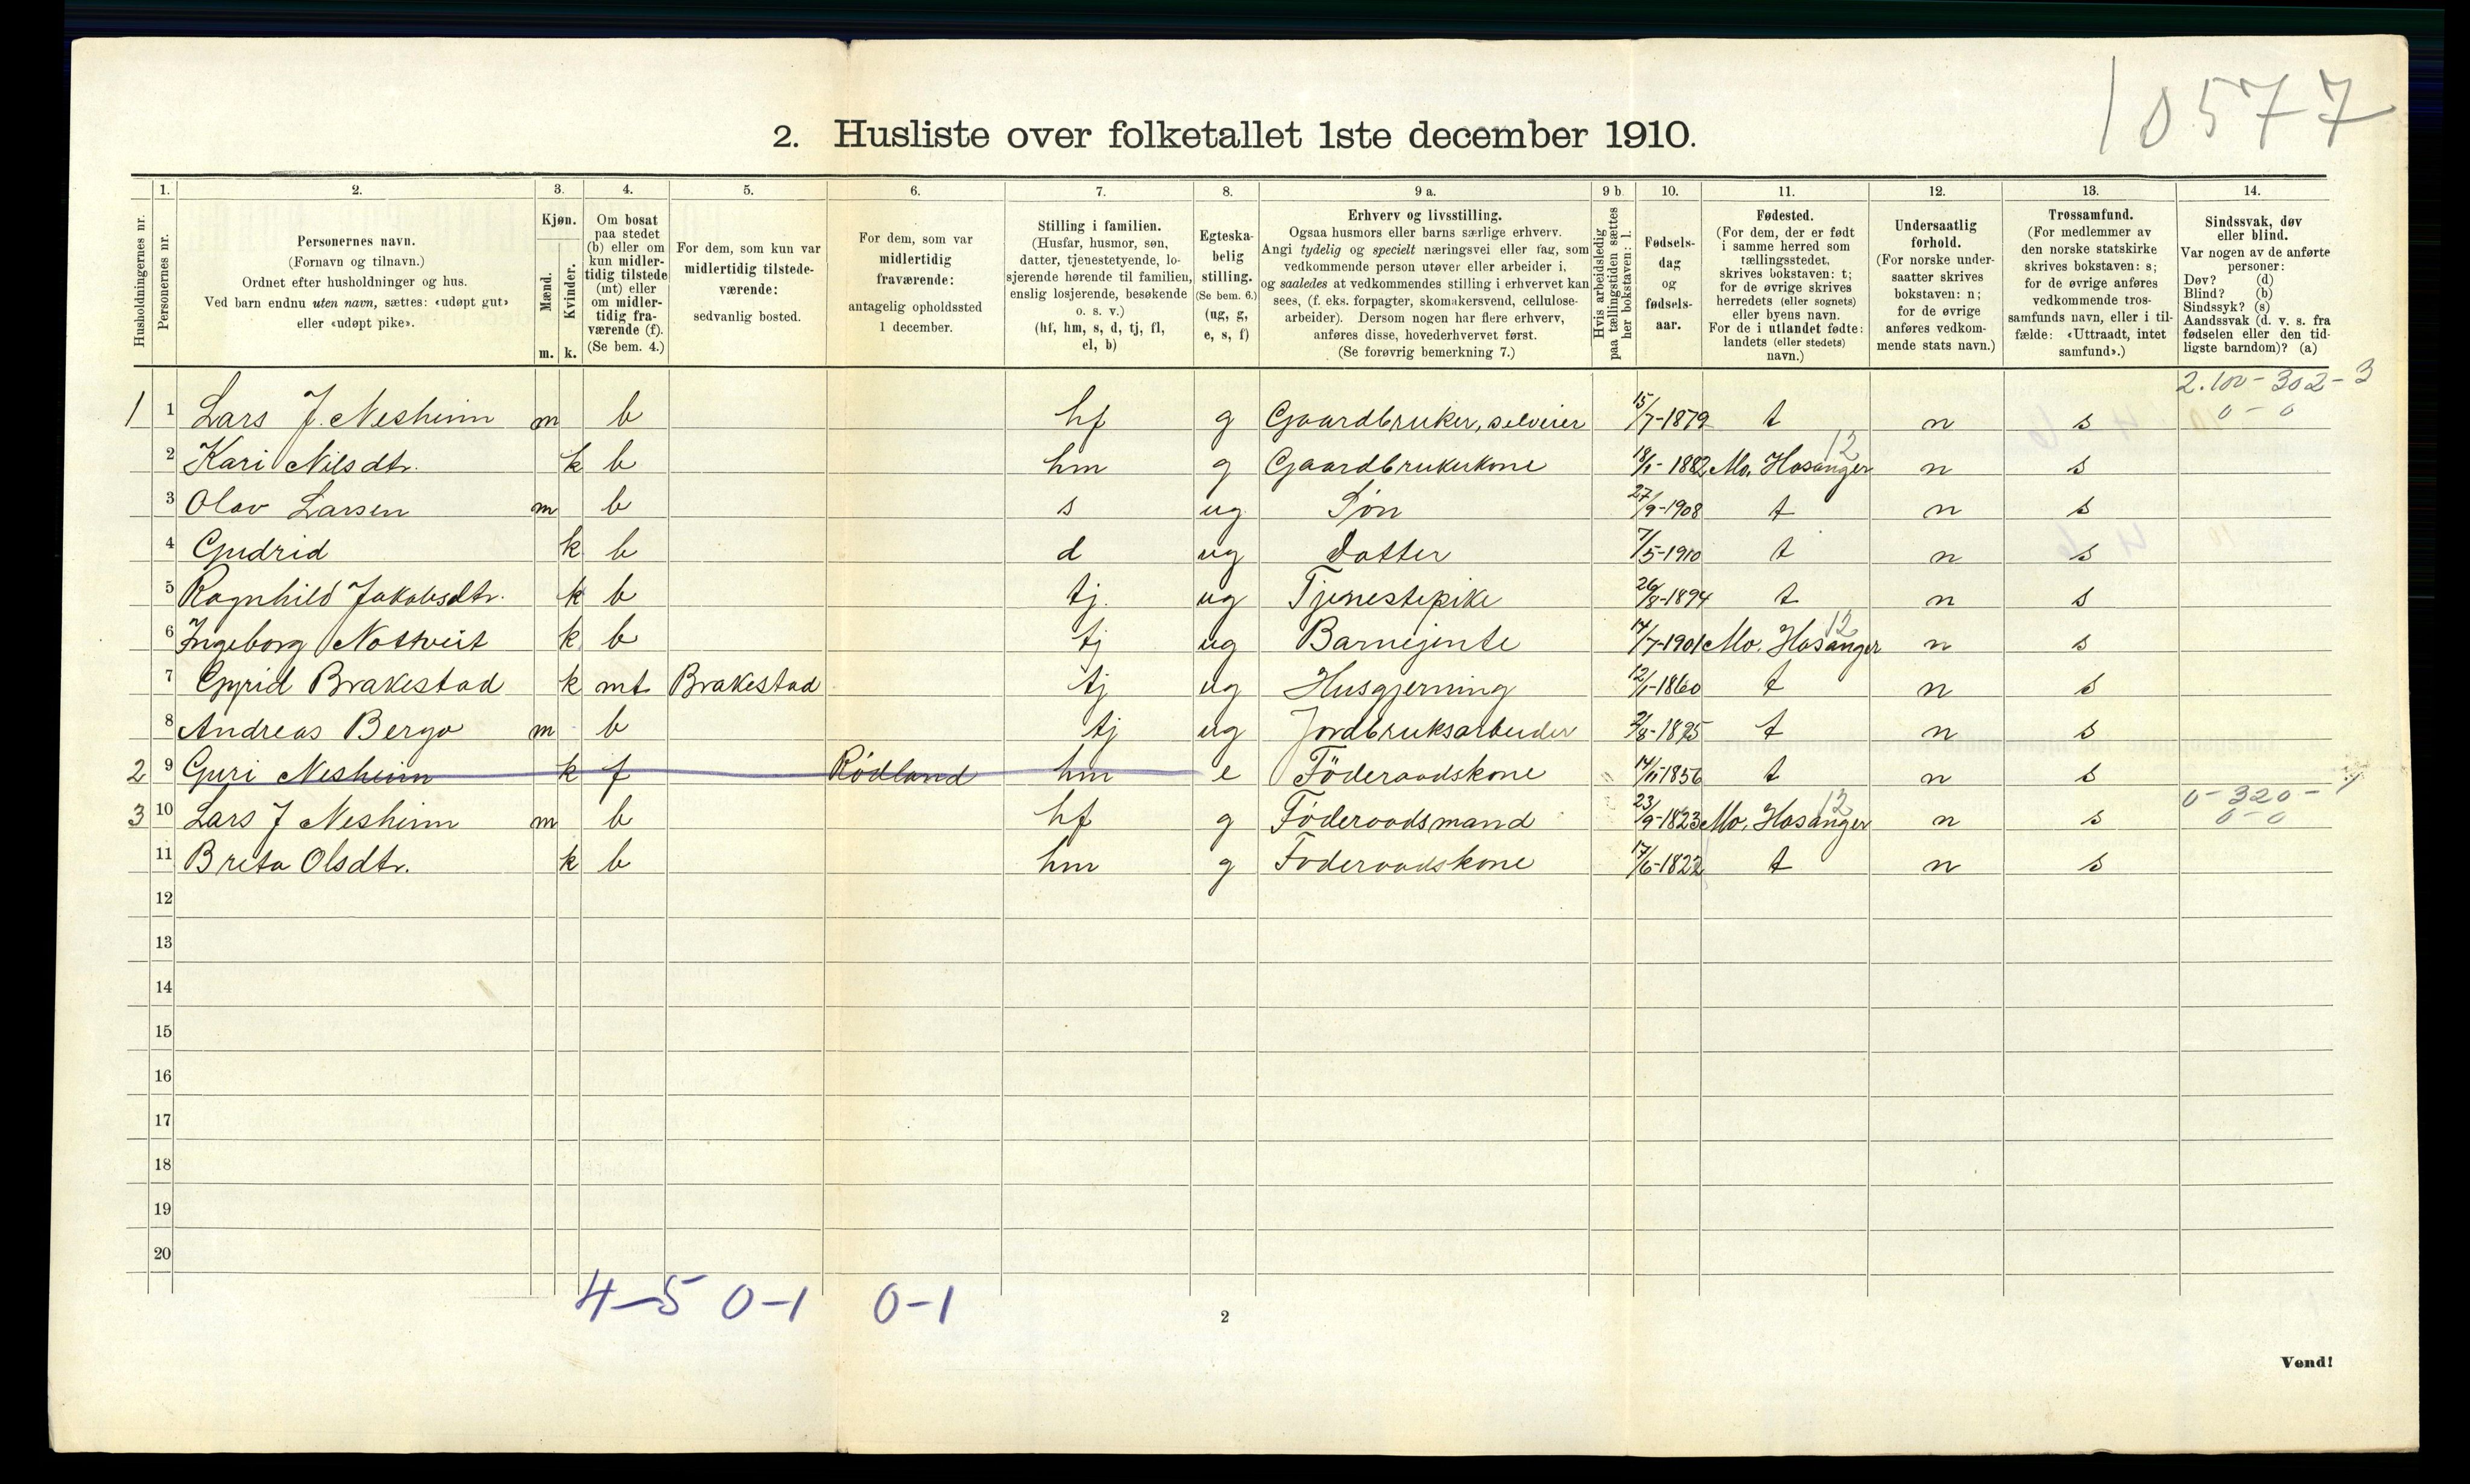 10577
2. Husliste over folketallet 1ste december 1910.
Husholdningernes nr.
1.
Personernes nr.
2.
Personernes navn.
(Fornavn og tilnavn.)
Ordnet efter husholdninger og hus.
Ved barn endnu uten navn, sættes: «udøpt gut»
eller «udøpt pike».
3.
Kjøn.
Mænd.
Kvinder.
m. k.
4.
Om bosat
paa stedet
(b) eller om
kun midler-
tidig tilstede
(mt) eller
om midler-
tidig fra-
værende (f).
(Se bem. 4.)
5.
For dem, som kun var
midlertidig tilstede-
værende:
sedvanlig bosted.
6.
For dem, som var
midlertidig
fraværende:
antagelig opholdssted
1 december.
7.
Stilling i familien.
(Husfar, husmor, søn,
datter, tjenestetyende, lo-
sjerende hørende til familien,
enslig losjerende, besøkende
o. s. v.)
(hf, hm, s, d, tj, fl,
el, b)
8.
Egteska-
belig
stilling.
(Se bem. 6.)
(ug, g,
e, s, f)
9 a.
Erhverv og livsstilling.
Ogsaa husmors eller barns særlige erhverv.
Angi tydelig og specielt næringsvei eller fag, som
vedkommende person utøver eller arbeider i,
og saaledes at vedkommendes stilling i erhvervet kan
sees, (f. eks. forpagter, skomakersvend, cellulose-
arbeider). Dersom nogen har flere erhverv,
anføres disse, hovederhvervet først.
(Se forøvrig bemerkning 7.)
9 b.
Hvis arbeidsledig
paa tællingstiden sættes
her bokstaven: l.
10.
Fødsels-
dag
og
fødsels-
aar.
11.
Fødested.
(For dem, der er født
i samme herred som
tællingsstedet,
skrives bokstaven: t;
for de øvrige skrives
herredets (eller sognets)
eller byens navn.
For de i utlandet fødte:
landets (eller stedets)
navn.)
12.
Undersaatlig
forhold.
(For norske under-
saatter skrives
bokstaven: n;
for de øvrige
anføres vedkom-
mende stats navn.)
13.
Trossamfund.
(For medlemmer av
den norske statskirke
skrives bokstaven: s;
for de øvrige anføres
vedkommende tros-
samfunds navn, eller i til-
fælde: «Uttraadt, intet
samfund».)
14.
Sindssvak, døv
eller blind.
Var nogen av de anførte
personer:
Døv? (d)
Blind? (b)
Sindssyk? (s)
Aandssvak (d. v. s. fra
fødselen eller den tid-
ligste barndom)? (a)
2.100-302-3
1 1 Lars J. Nesheim m b hf g Gaardbruker, selveier 15/7-1879 t n s 0-0
12
2 Kari Nilsdtr. k b hm g Gaardbrukerkone 18/1-1882 Mo. Hosanger n s
3 Olav Larsen m b s ug Søn 27/9-1908 t n s
4 Gudrid k b d ug Datter 7/5-1910 t n s
5 Ragnhild Jakobsdtr. k b tj. ug Tjenestepike 26/8-1894 t n s
12
6 Ingeborg Nottveit k b tj ug Barnejente 14/7-1901 Mo. Hosanger n s
7 Gyrid Brakestad k mt Brakestad tj ug Husgjerning 12/1-1860 t n s
8 Andreas Bergo m b tj ug Jordbruksarbeider 2/8-1895 t n s
2 9 Guri Nesheim k f Rödland hm e Föderaadskone 14/11-1856 t n s
12 0-320-
3 10 Lars J Nesheim m b hf g Föderaadsmand 23/9-1823 Mo. Hosanger n s 0-0
11 Brita Olsdtr. k b hm g Föderaadskone 17/6-1822 t n s
12
13
14
15
16
17
18
19
20
4-5 0-1 0-1
2
Vend!